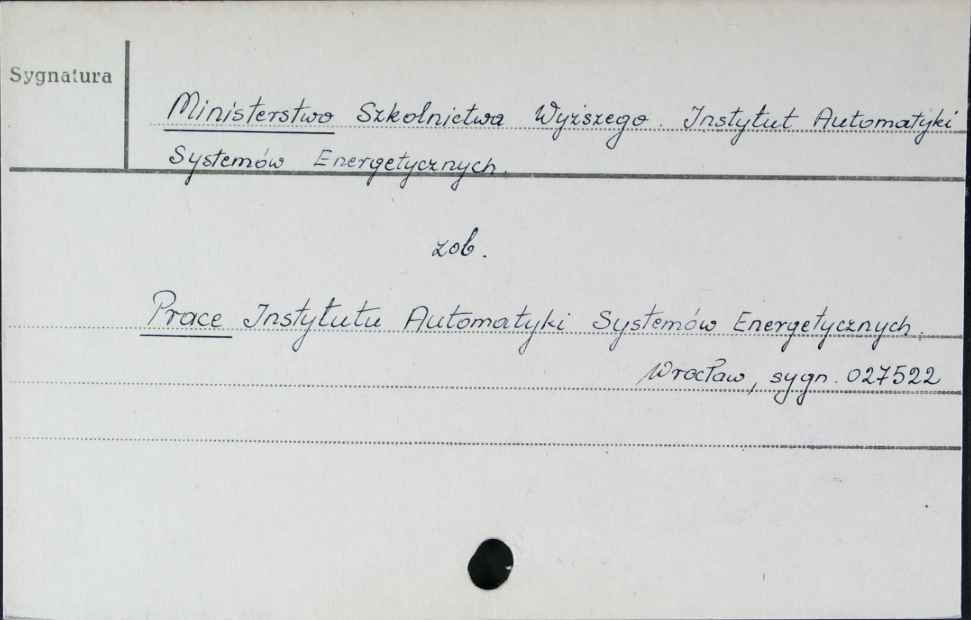 Sygnatura
Ministerstwo Szkolnictwa Wyższego. Instytut Automatyki
Systemów Energetycznych.
zob.
Prace Instytutu Automatyki Systemów Energetycznych.
Wrocław, sygn. 027522